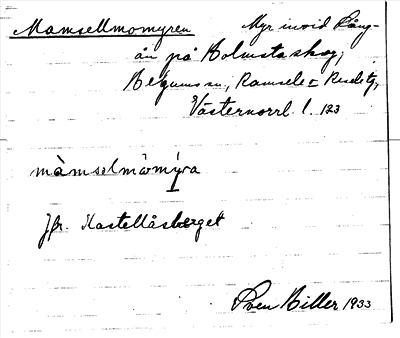 Mamsellmomyren Myr invid Lång-
ån på Holmstaskog,
Helgums sn, Ramsele o. Resele tg,
Västernorrl. l. 123
màmselmòmýra
Jfr. Kastellåsberget
Sven Biller 1933